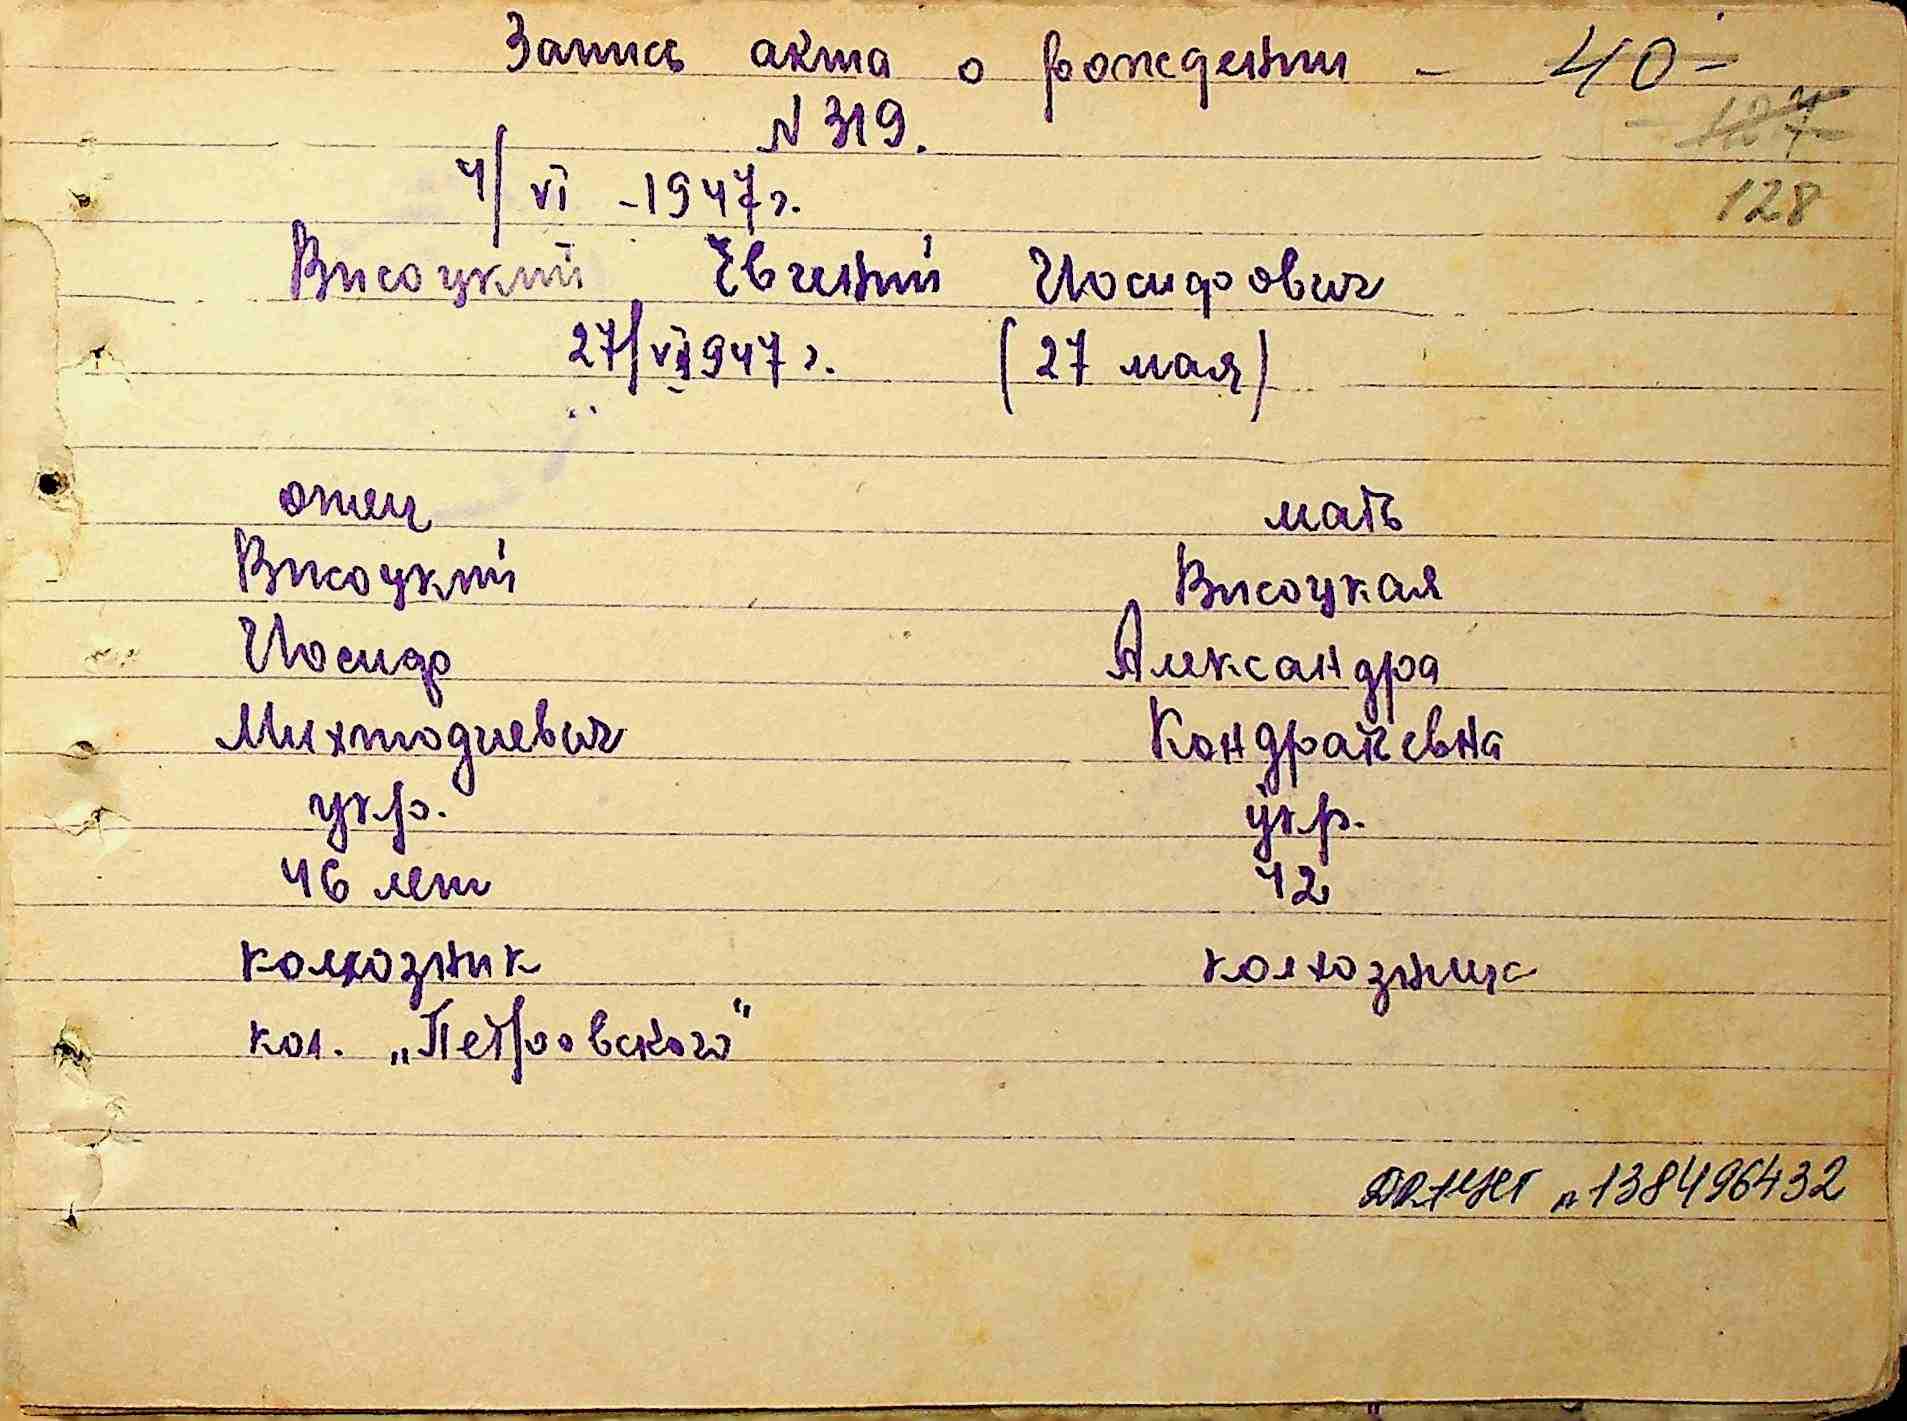 Запись акта о рождении - 40 -
N 319. 127
4/VI - 1947 г. 128
Висоцкий Евгений Иосифович
27/V 1947 г. (27 мая)
отец мать
Висоцкий Висоцкая
Иосиф Александра
Михтодиевич Кондратевна
укр. укр.
46 лет 42
колхозник колхозница
кол. „Петровского"
138496432